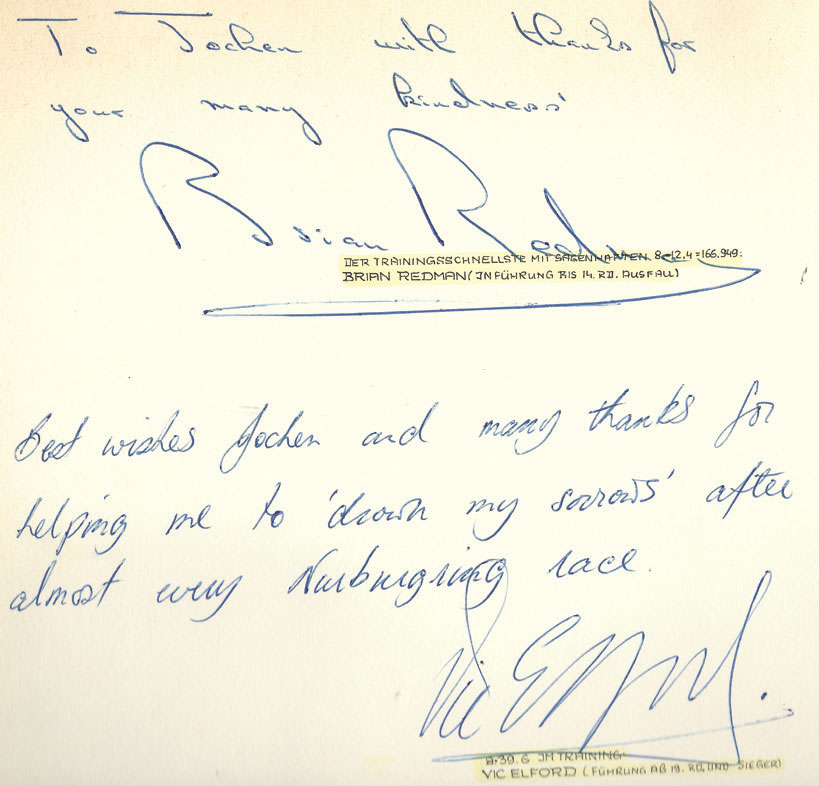 To Jochen with thanks for
your many kindness'
Brian Redman
DER TRAININGSSCHNELLSTE MIT SAGENHAFTEN 8-12.4=166.949:
BRIAN REDMAN (IN FÜHRUNG BIS 14. RD. AUSFALL)
Best wishes Jochen and many thanks for
helping me to 'drown my sorrows' after
almost every Nurburgring race.
Vic Elford.
8.39.6 IM TRAINING
VIC ELFORD (FÜHRUNG AB 19. RD. UND SIEGER)